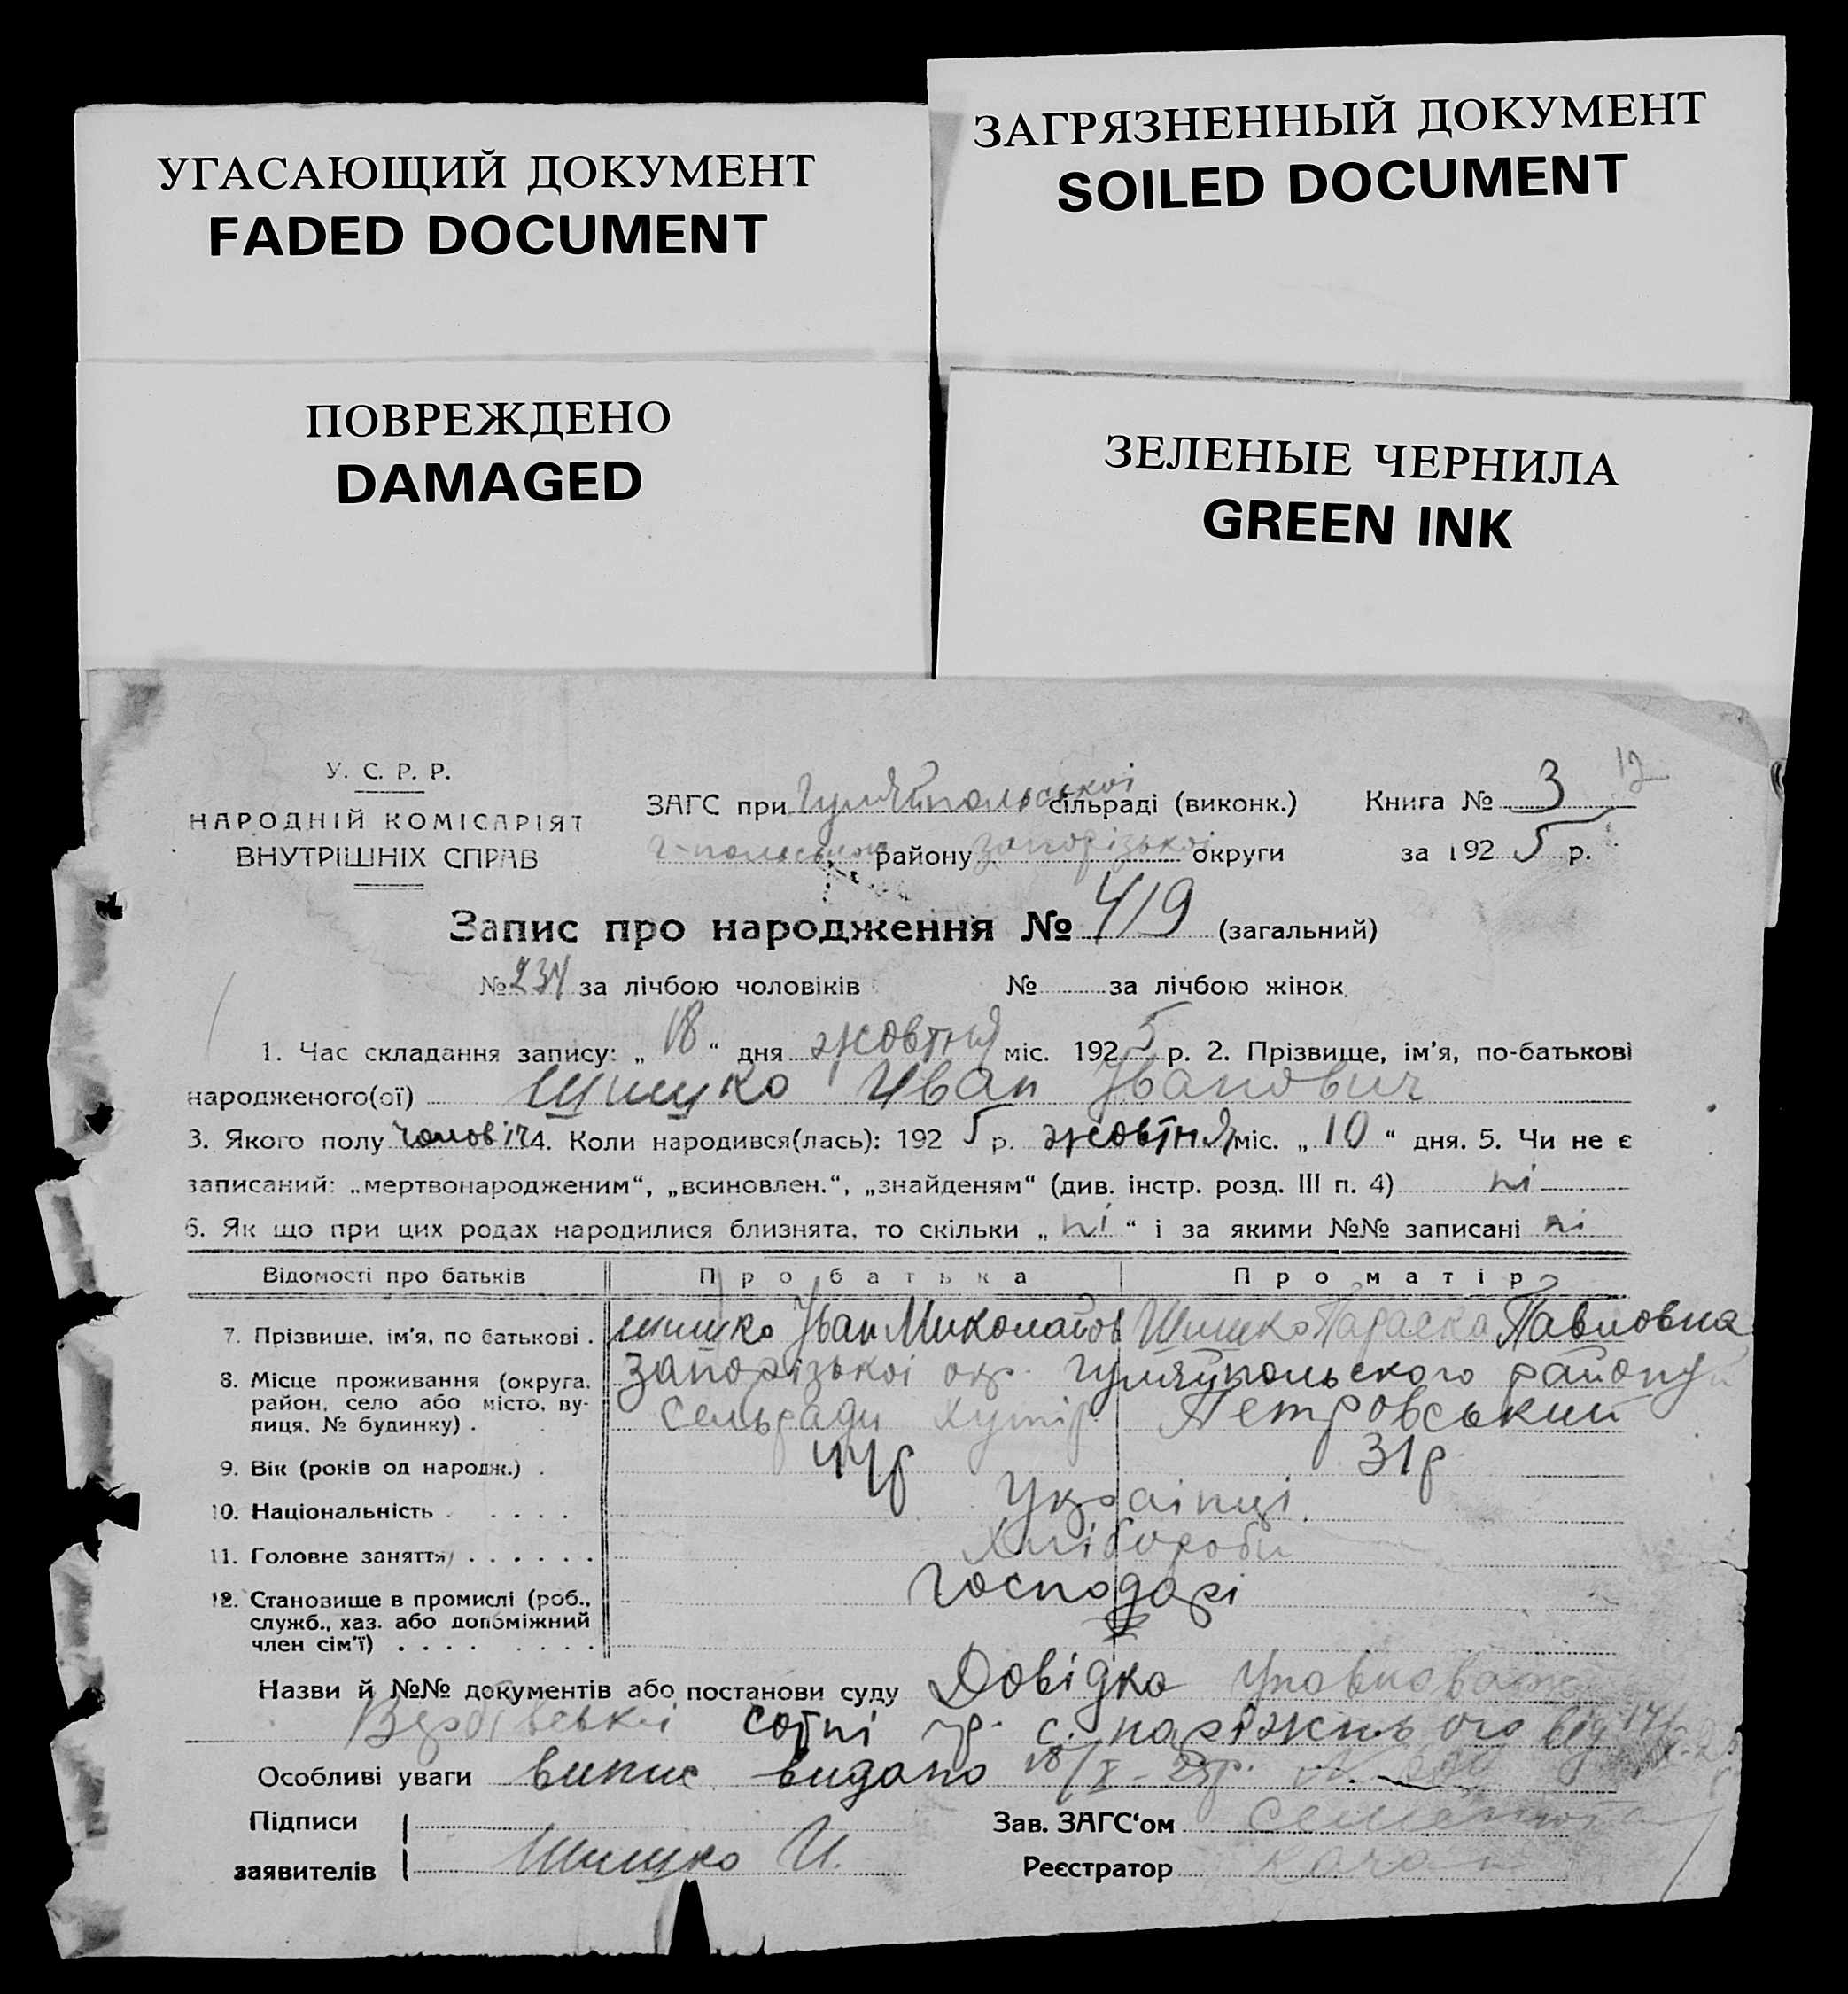 УГАСАЮЩИЙ ДОКУМЕНТ
FADED DOCUMENT
ЗАГРЯЗНЕННЫЙ ДОКУМЕНТ
SOILED DOCUMENT
ПОВРЕЖДЕНО
DAMAGED
ЗЕЛЕНЫЕ ЧЕРНИЛА
GREEN INK
У. С. Р. Р.
НАРОДНІЙ КОМІСАРІЯТ
ВНУТРІШНІХ СПРАВ
ЗАГС при Гуляйпольської сільраді (виконк.)
Г-польського району Запорізької округи
Книга № 3
12
за 1925 р.
Запис про народження № 419 (загальний)
№ 234 за лічбою чоловіків № за лічбою жінок
1. Час складання запису: „18“ дня жовтня міс. 1925 р. 2. Прізвище, ім'я, по-батькові
народженого(ої) Шишко Иван Іванович
3. Якого полу чоловіч 4. Коли народився(лась): 1925 р. жовтня міс. „10“ дня. 5. Чи не є
записаний: „мертвонародженим“, „всиновлен.“, „знайденям“ (див. інстр. розд. III п. 4) ні
6. Як що при цих родах народилися близнята, то скільки „ні“ і за якими №№ записані ні
Відомості про батьків Про батька Про матір
7. Прізвище, ім'я, по батькові . Шишко Іван Миколайов Шишко Параска Павловна
8. Місце проживання (округа, район, село або місто, вулиця, № будинку) . Запорізької окр. Гуляйпольского району
Сельради хутір Петровський
9. Вік (років од народж.) . 44р 31р
10. Національність . . . . . Українці
11. Головне заняття . . . . . . Хлібороби
12. Становище в промислі (роб., служб., хаз. або допоміжний член сім'ї) . . . . . . . . Господарі
Назви й №№ документів або постанови суду Довідка Уповноваж
Вербівської сотні гр. с. наріжнього від 17/X-25
Особливі уваги випис видано 18/X-25р. №
Підписи
заявителів Шишко И.
Зав. ЗАГС'ом
Реєстратор